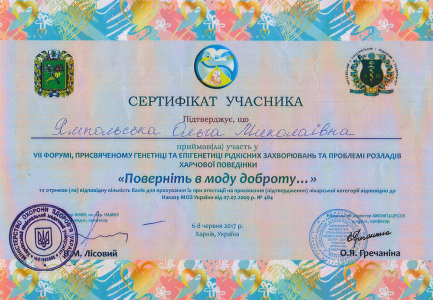 СЕРТИФІКАТ УЧАСНИКА
Підтверджує, що
Ямпольська Ольга Миколаївна
приймав(ла) участь в
VII ФОРУМІ, ПРИСВЯЧЕНОМУ ГЕНЕТИЦІ ТА ЕПІГЕНЕТИЦІ РІДКІСНИХ ЗАХВОРЮВАНЬ ТА ПРОБЛЕМІ РОЗЛАДІВ
ХАРЧОВОЇ ПОВЕДІНКИ
«Поверніть в моду доброту...»
та отримав (ла) відповідну кількість балів для врахування їх при атестації на присвоєння (підтвердження) лікарської категорії відповідно до
Наказу МОЗ України від 07.07.2009 р. № 484
6-8 червня 2017 р.
Харків, Україна
В.М. Лісовий
О.Я. Гречаніна